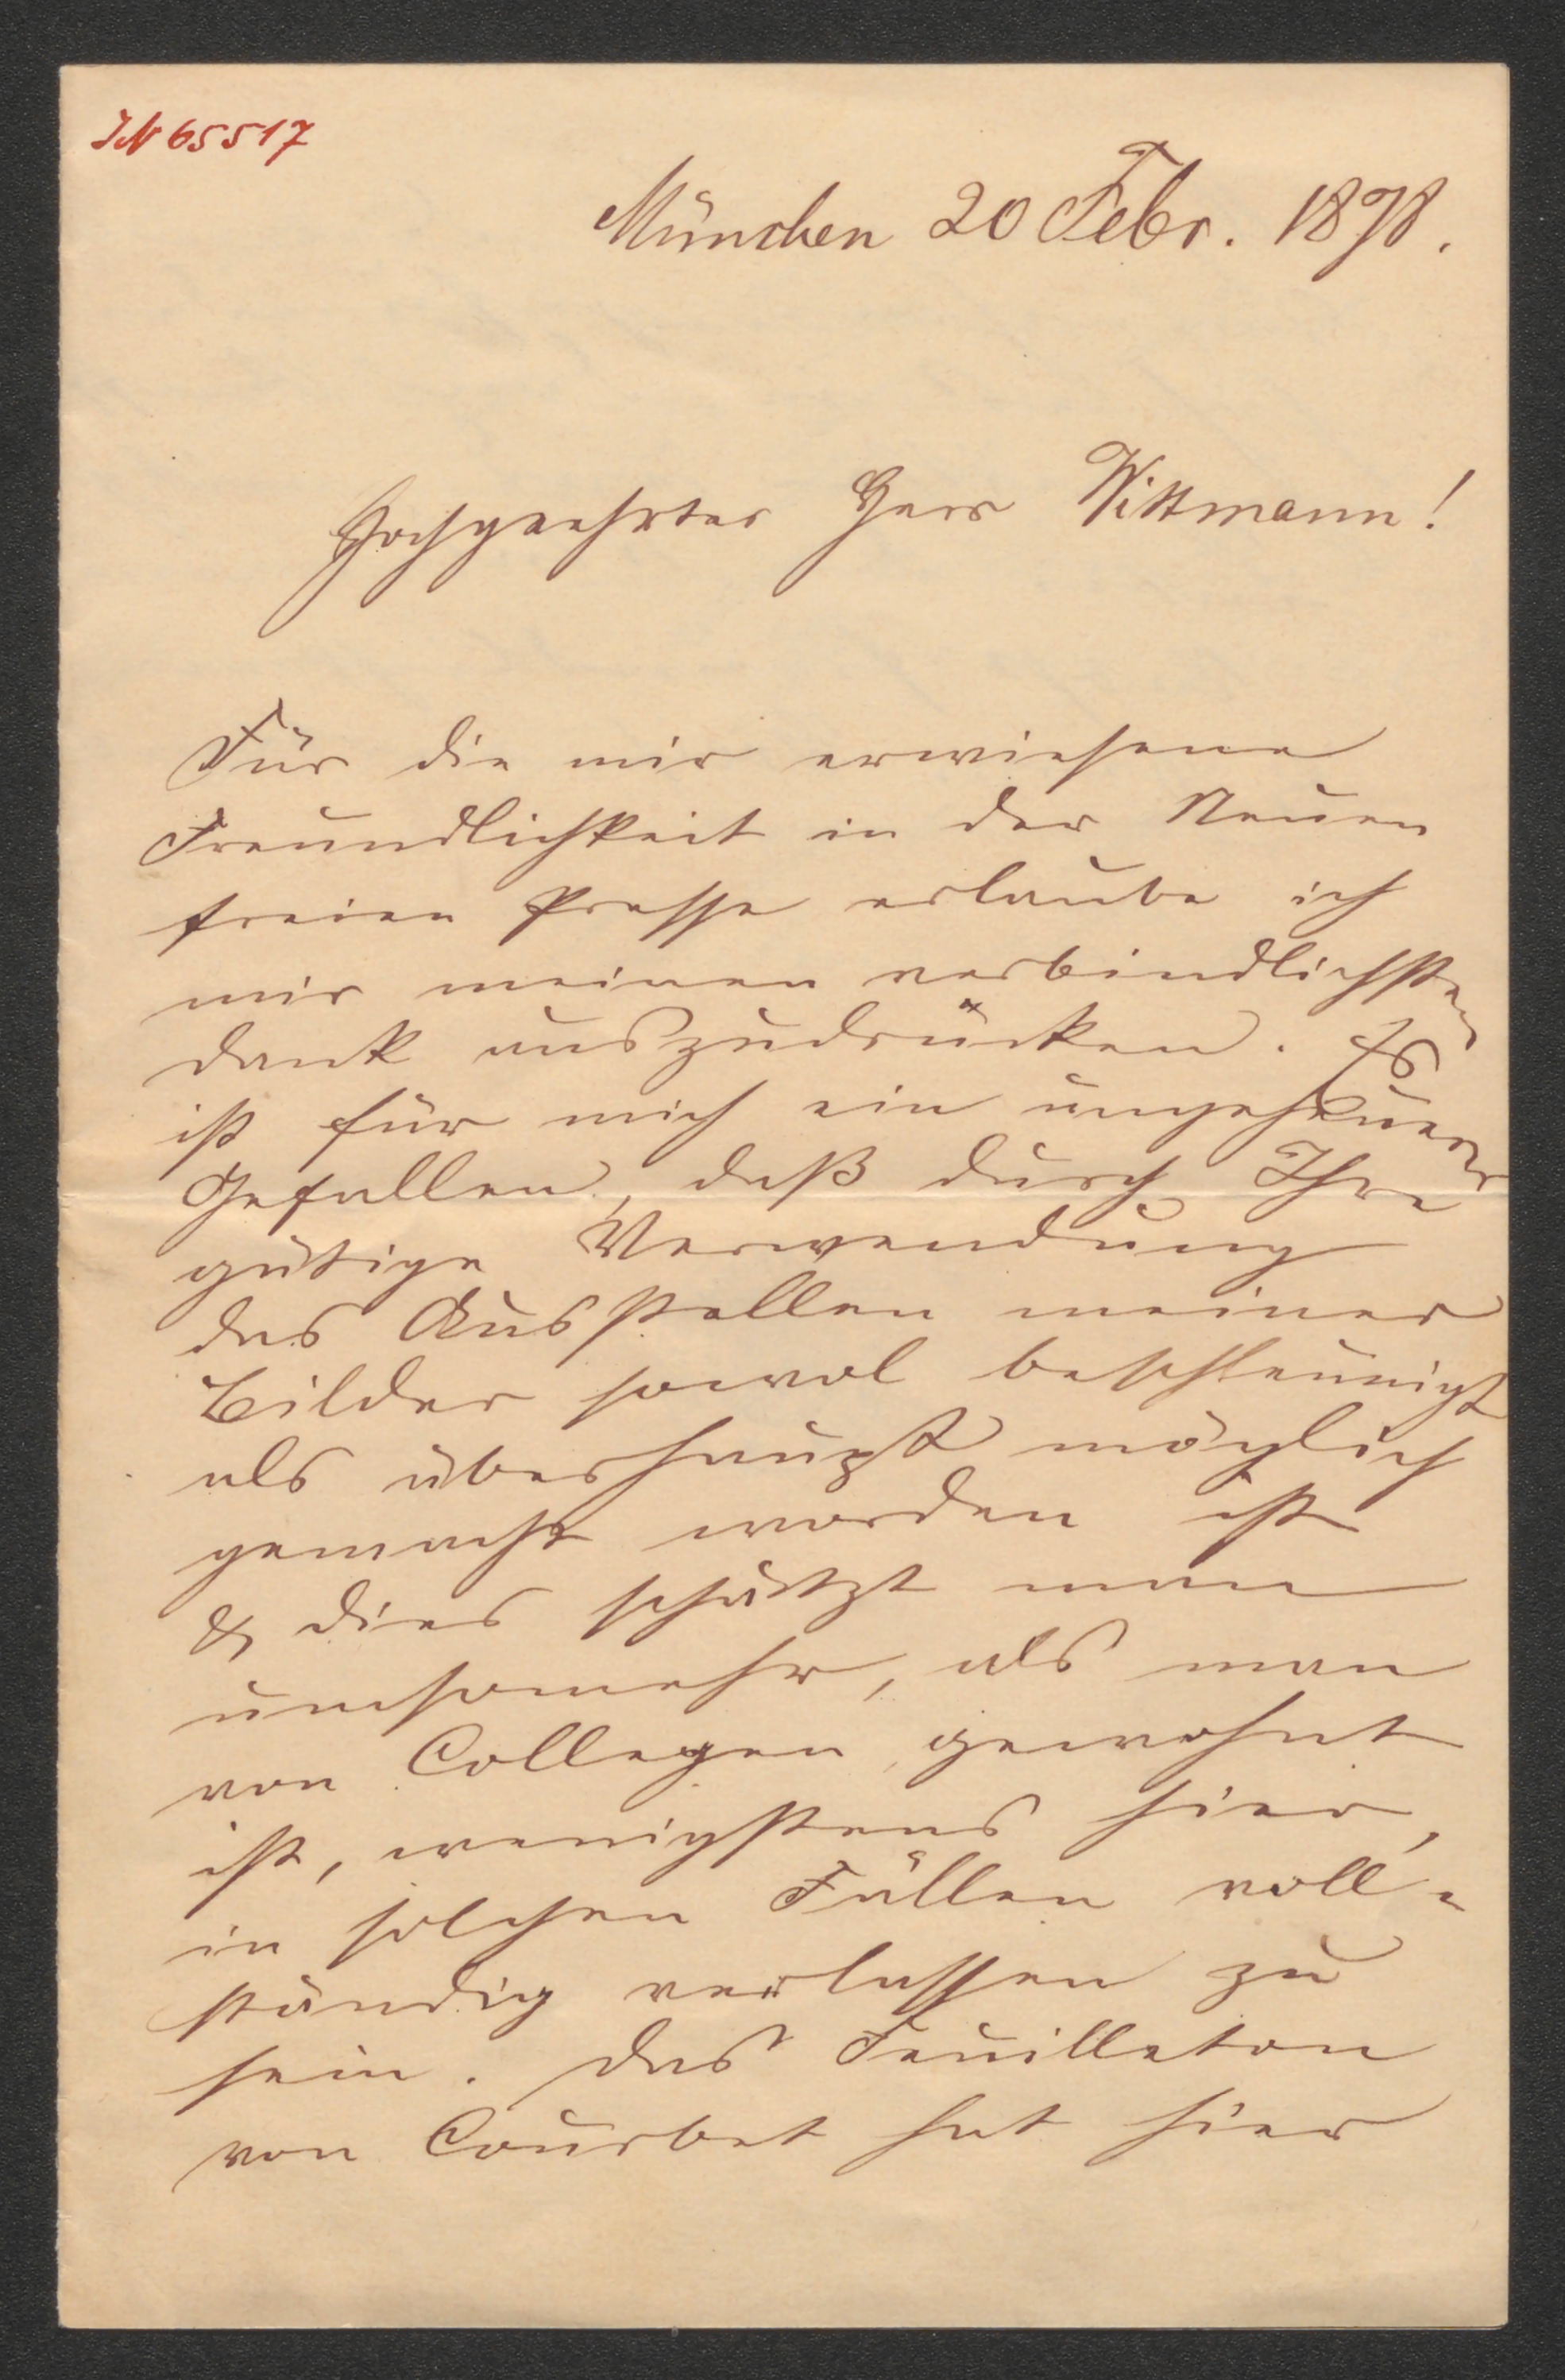 IN 65517
München 20 Febr. 1878.
Hochgeehrter Herr Wittmann!
Für die mir erwiesene
Freundlichkeit in der Neuen
freien Presse erlaube ich
mir meinen verbindlichsten
Dank auszudrücken. Es
ist für mich ein ungeheuerer
Gefallen, daß durch Ihre
gütige Verwendung
das Ausstellen meiner
Bilder sowol beschleunigt
als überhaupt möglich
gemacht worden ist
& dies schätzt man
umsomehr, als man
von Collegen gewohnt
ist, wenigstens hier,
in solchen Fällen voll-
ständig verlassen zu
sein. Das Feuilleton
von Courbet hat hier